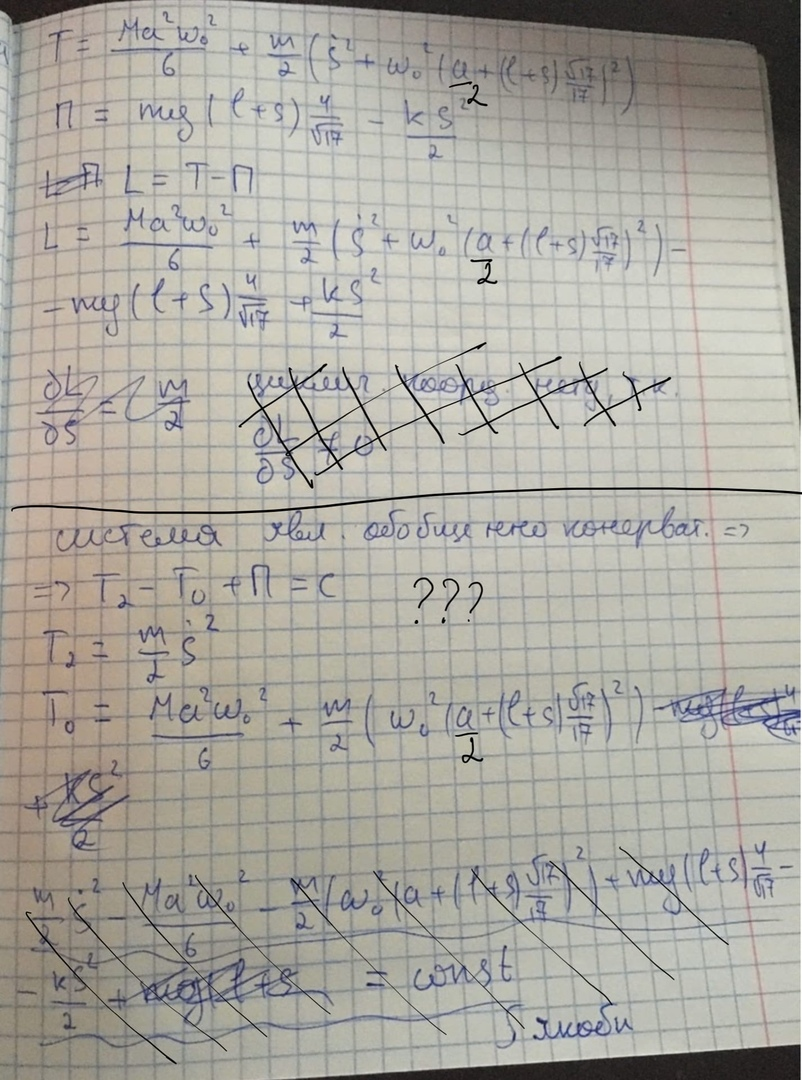 T = Ma²ω₀²/6 + m/2 (ṡ² + ω₀²(a/2 + (l+s) √17/17)²)
П = mg(l+s) 4/√17 − ks²/2
L = T−П
L = Ma²ω₀²/6 + m/2 (ṡ² + ω₀²(a/2 + (l+s) √17/17)²) −
− mg(l+s) 4/√17 + ks²/2
∂L/∂s = m/2 циклич. коорд. нету, т.к.
∂L/∂s ≠ 0
система явл. обобщенно консерват. =>
=> T₂ − T₀ + П = c ???
T₂ = m/2 ṡ²
T₀ = Ma²ω₀²/6 + m/2 (ω₀²(a/2 + (l+s) √17/17)²) − mg(l+s) 4/√17
+ ks²/2
m/2 ṡ² − Ma²ω₀²/6 − m/2 (ω₀²(a + (l+s) √17/17)²) + mg(l+s) 4/√17 −
− ks²/2 + mg(l+s = const
∫ якоби